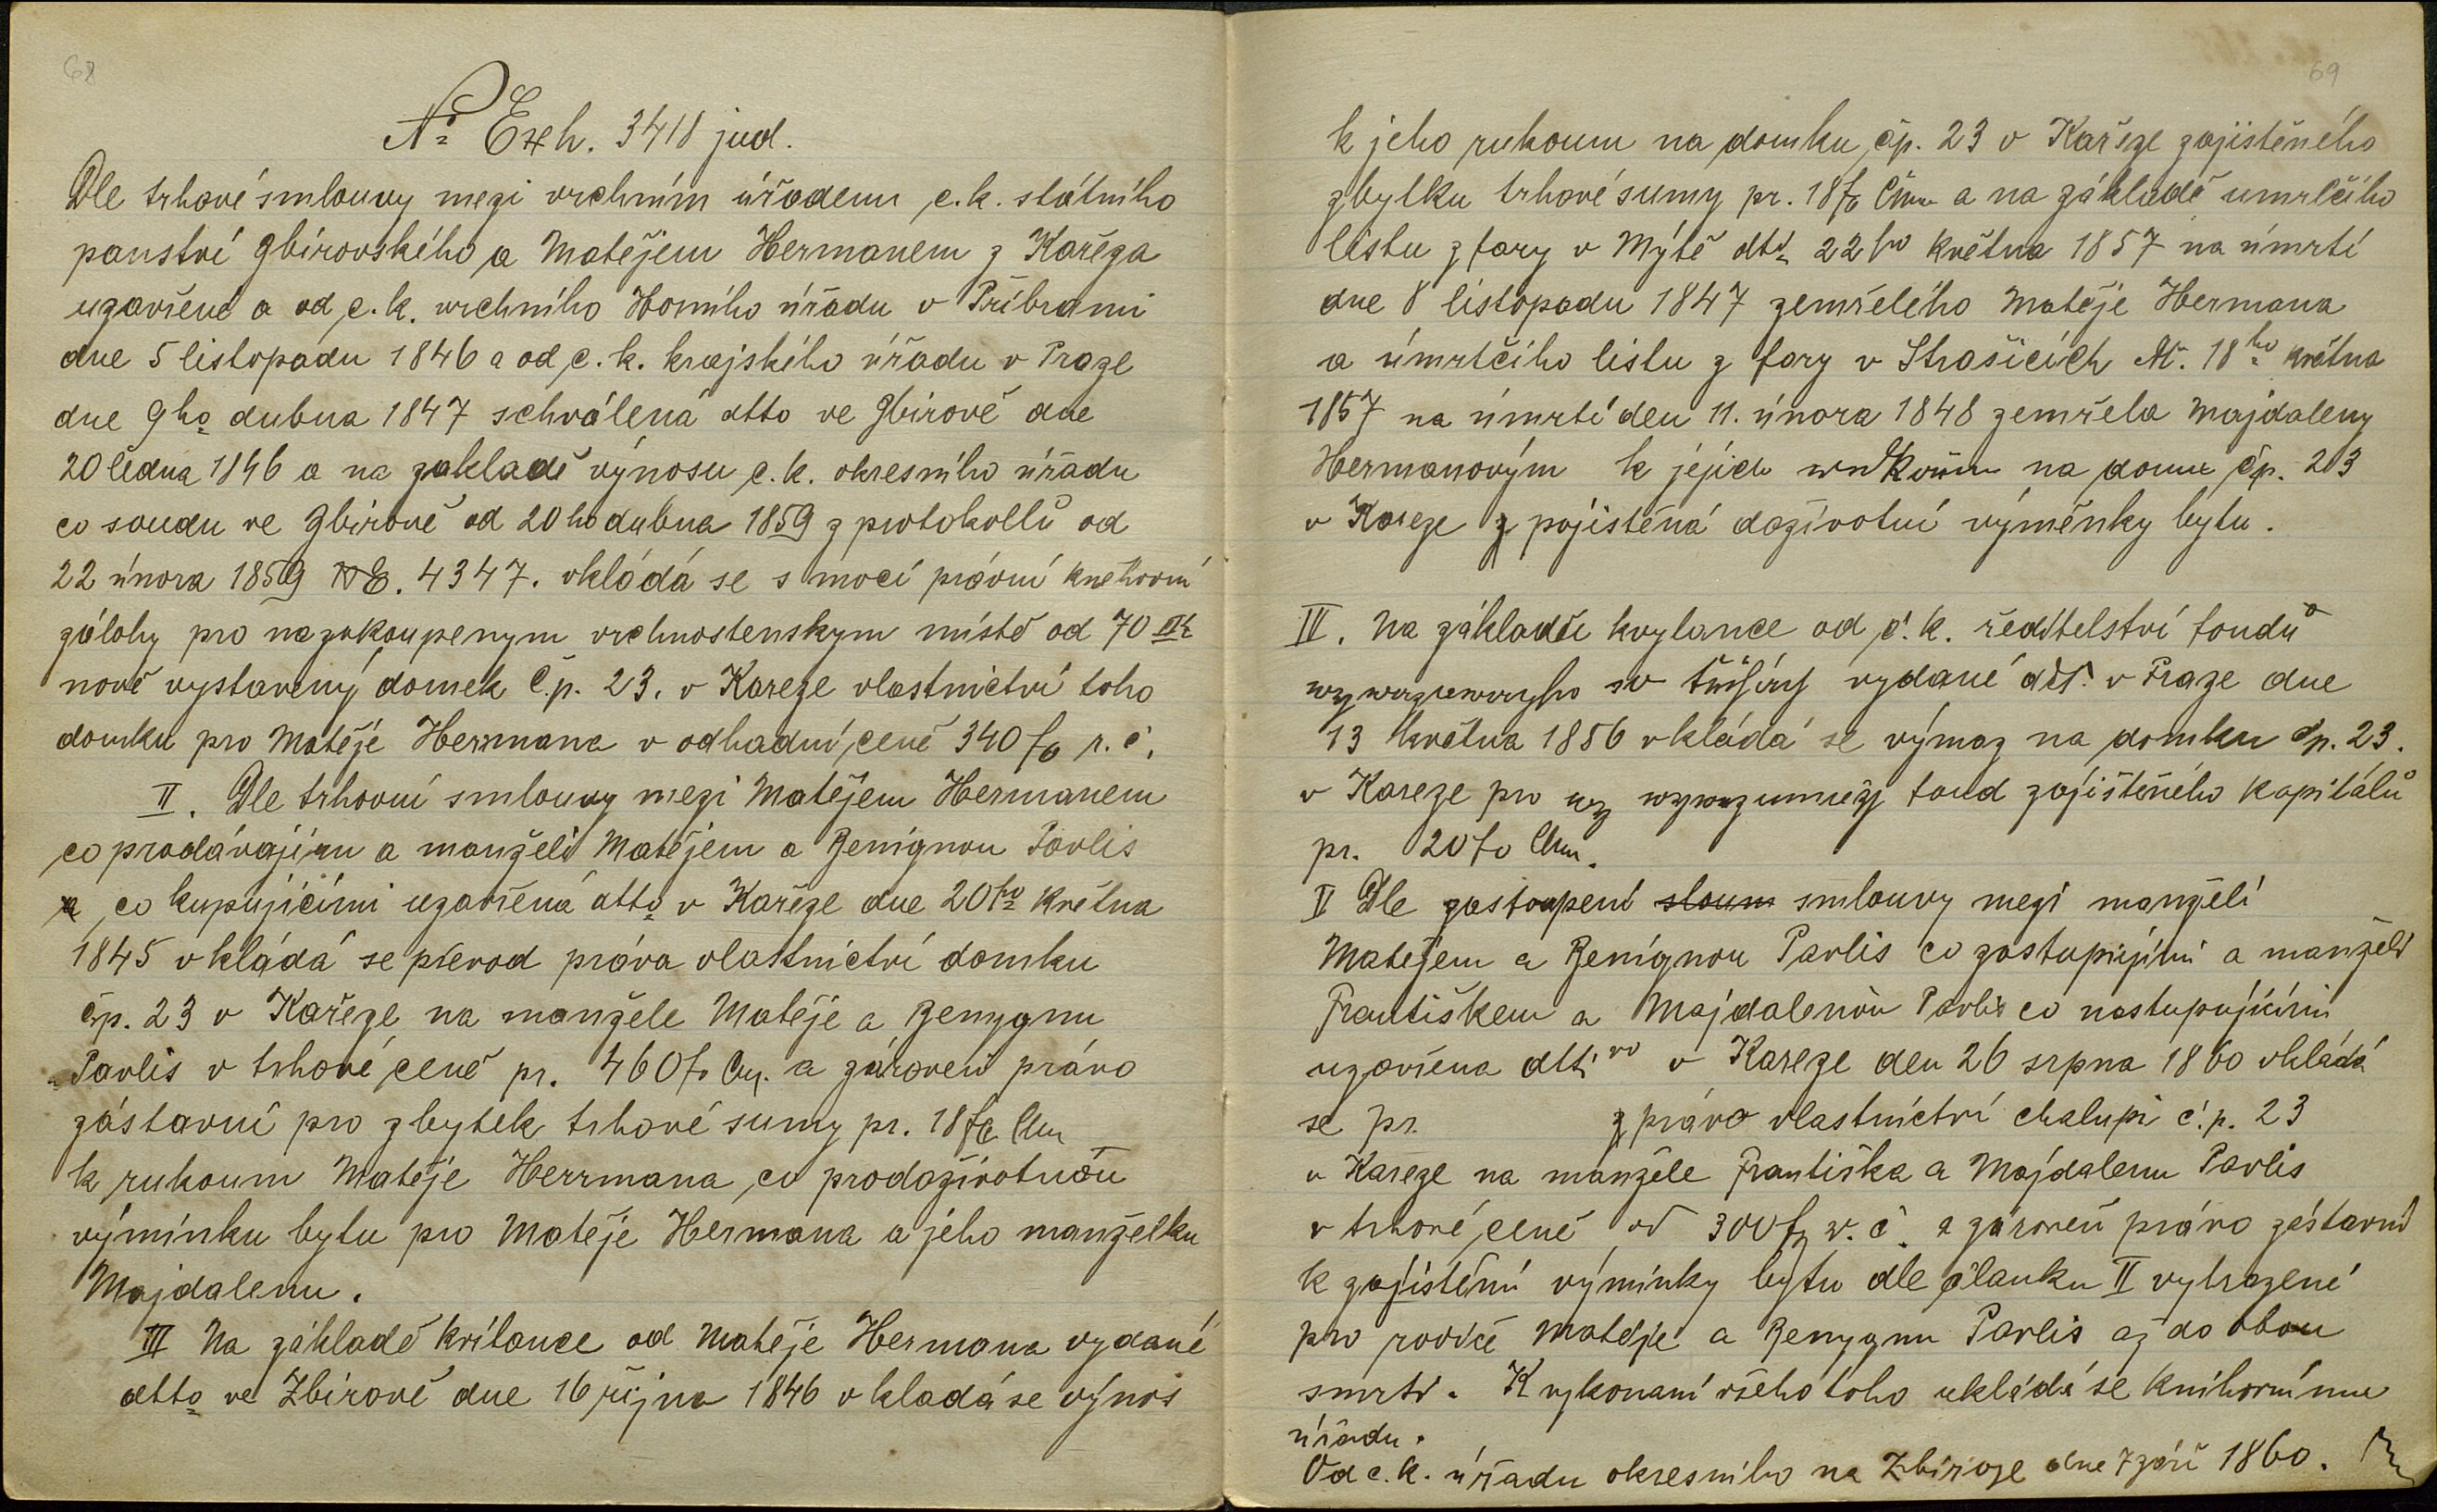 68
No Exh. 3418 jud.
Dle trhové smlouvy mezi vrchním úřadem c.k. státního
panství Zbirovského a Matějem Hermanem z Kařeza
uzavřené a od c.k. vrchního Horního úřadu v Příbrami
dne 5 listopadu 1846 a od c.k. krajského úřadu v Praze
dne 9ho dubna 1847 schválená dtto ve Zbirově dne
20 ledna 1846 a na zakladě výnosu c.k. okresního úřadu
co soudu ve Zbirově od 20 ho dubna 1859 z protokollů od
22 února 1859 NE. 4347. vkládá se s mocí právní knehovní
zálohy pro na zakoupenym vrchnostenskym místě od 70
nově vystavený domek č.p. 23. v Kareze vlastnictví toho
domku pro Matěje Hermana v odhadní ceně 340 fl r. č.
II. Dle trhovní smlouvy mezi Matějem Hermanem
co prodávajícím a manželi Matějem a Benignou Pavlis
a co kupujícími uzavřená dtto v Kařeze dne 20ho května
1845 vkládá se převod práva vlastnictví domku
čp. 23 v Kařeze na manžele Matěje a Benygnu
Pavlis v trhové ceně pr. 460 fl Cm. a zároveň právo
zástavní pro zbytek trhové sumy pr. 18 fl Cm
k rukoum Matěje Herrmana co pro doživotnou
výminku bytu pro Matěje Hermana a jeho manželku
Majdalenu.
III Na základě kvitance od Matěje Hermana vydané
dtto ve Zbirově dne 16 října 1846 vkladá se výnos
69
k jeho rukoum na domku čp. 23 v Kařeze zajistěného
zbytku trhové sumy pr. 18 fl Cm a na základě umrlčího
listu z fary v Mýtě dtt 22ho května 1857 na úmrtí
dne 8 listopadu 1847 zemřelého Matěje Hermana
a úmrtčího listu z fary v Strašicích Nr. 18ho května
1857 na úmrtí den 11. února 1848 zemřela Majdaleny
Hermanovým k jéjich na domu čp. 23
v Kareze z pojistěná doživotní výměnky bytu.
IV. Na základě kvytance od c.k. ředitelství fondů
vydané dtt. v Praze dne
13 května 1856 vkládá se výmaz na domku čp. 23.
v Kareze pro fond zajištěného kapitálů
pr. 20 fl Cm.
V Dle zastoupení sloum smlouvy mezi manželi
Matějem a Benignou Pavlis co zastupujími a manželi
Františkem a Majdalenou Pavlis co nastupujícími
uzavřena dtto v Kareze den 26 srpna 1860 vkládá
se pr. z právo vlastnictví chalupi č.p. 23
v Kareze na manžele Františka a Majdalenu Pavlis
v trhové ceně od 300 fl r. č. a zároveň právo zástavní
k zajistění výminky bytu dle článku II vyhrazené
pro rodiče Matěje a Benygnu Pavlis až do obou
smrti. K vykonaní všeho toho ukládá se knihovnímu
úřadu.
Od c.k. úřadu okresního na Zbiroze dne 7 září 1860.